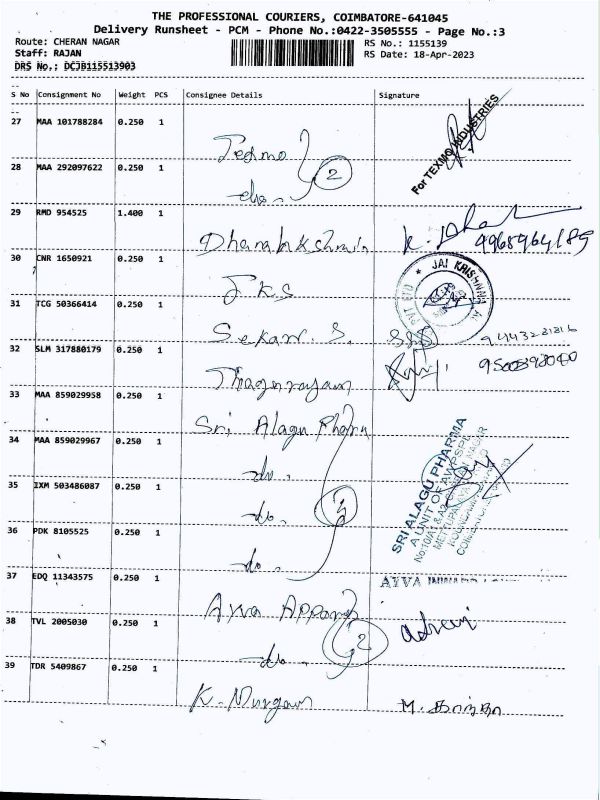 THE PROFESSIONAL COURIERS, COIMBATORE-641045
Delivery Runsheet - PCM - Phone No.:0422-3505555 - Page No.:3
Route: CHERAN NAGAR RS No.: 1155139
Staff: RAJAN RS Date: 18-Apr-2023
DRS No.: DCJB115513903
S No Consignment No Weight PCS Consignee Details Signature
27 MAA 101788284 0.250 1
Texmo
For TEXMO INDUSTRIES
28 MAA 292097622 0.250 1
do. 2
29 RMD 954525 1.400 1
Dhanalakshmi
30 CNR 1650921 0.250 1
J.K.S
JAI KRISHNAA
PVT LTD
31 TCG 50366414 0.250 1
Sekar. S.
32 SLM 317880179 0.250 1
Thagarayam
33 MAA 859029958 0.250 1
Sri Alagu Pharma
34 MAA 859029967 0.250 1
do.
SRI ALAGU PHARMA
A UNIT OF AWPSPL
35 IXM 503486087 0.250 1
do.
36 PDK 8105525 0.250 1
do.
37 EDQ 11343575 0.250 1
AYVA
Ayva Apparel
38 TVL 2005030 0.250 1
do. 2
39 TDR 5409867 0.250 1
K. Murgan